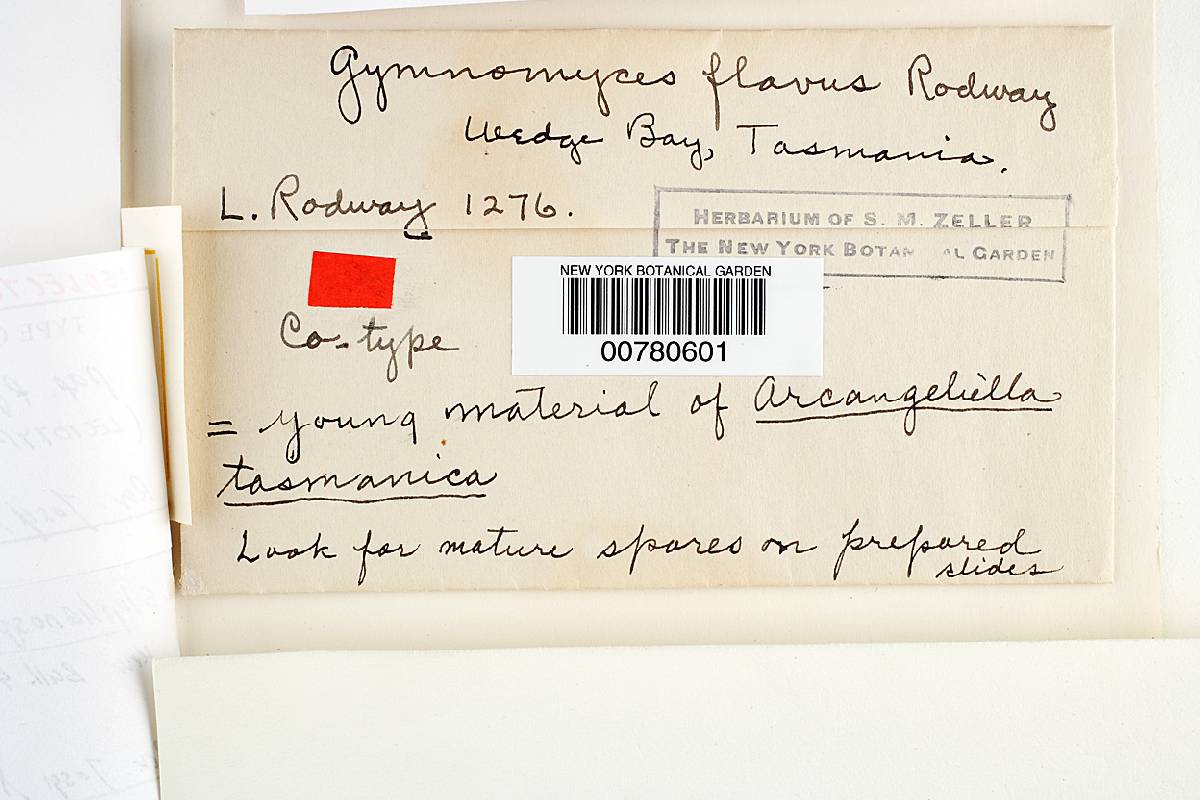 Gymnomyces flavus Rodway
Wedge Bay, Tasmania.
L. Rodway 1276.
HERBARIUM OF S. M. ZELLER
THE NEW YORK BOTAN AL GARDEN
NEW YORK BOTANICAL GARDEN
00780601
Co-type
= young material of Arcangeliella
tasmanica
Look for mature spores on prepared
slides